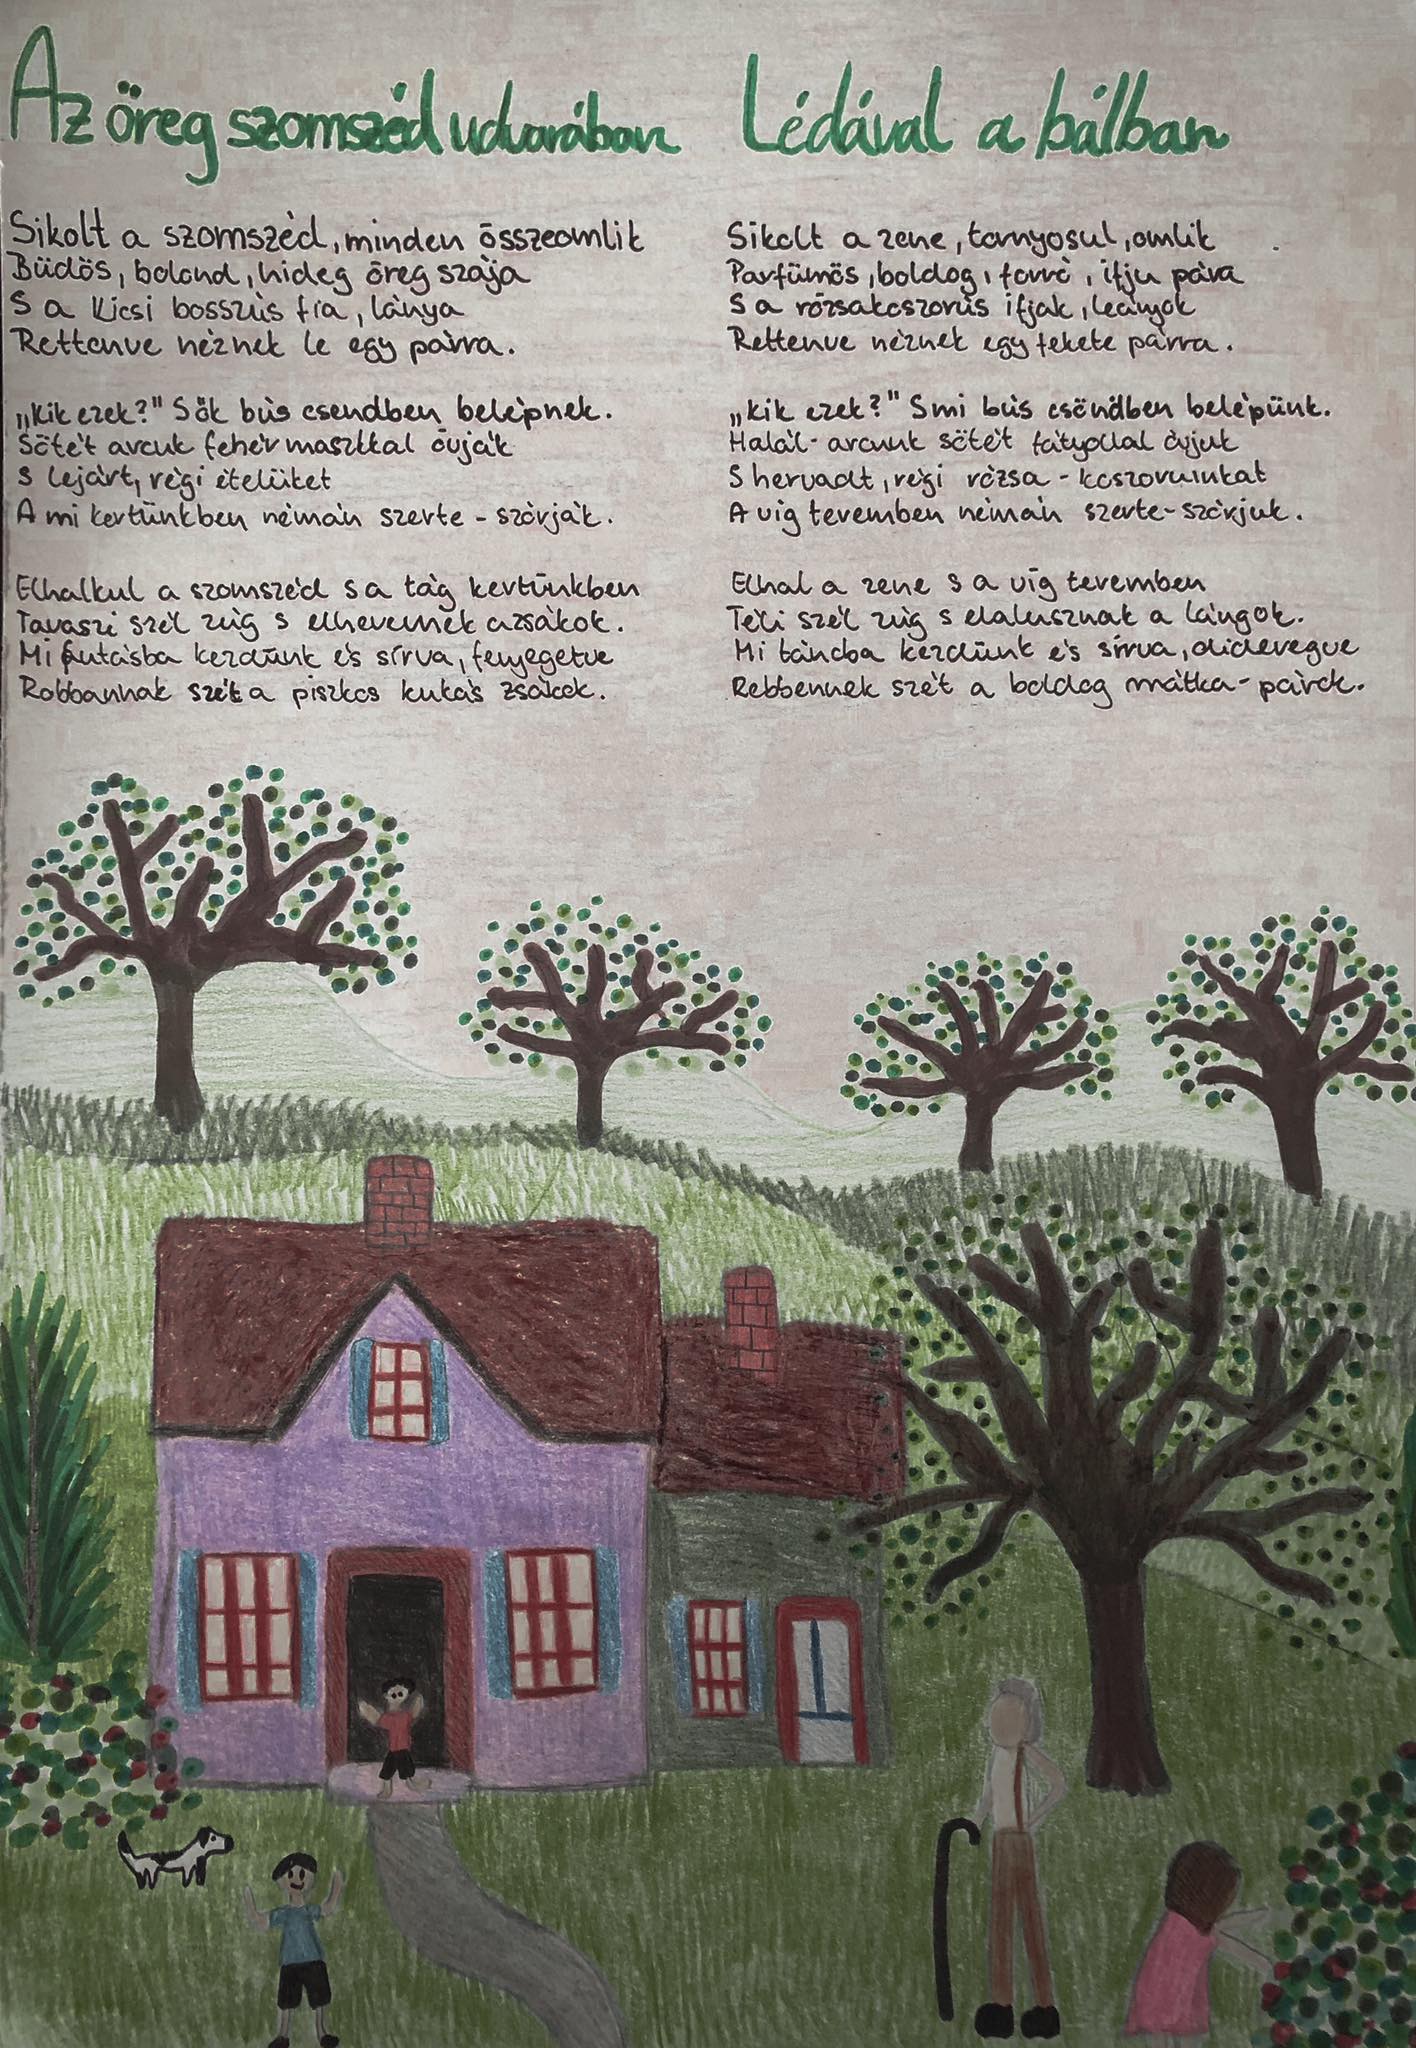 Az öreg szomszéd udvarában
Sikolt a szomszéd, minden összeomlik
Büdös, bolond, hideg öreg szája
S a kicsi bosszús fia, lánya
Rettenve néznek le egy párra.
„Kik ezek?" Sők bús csendben belépnek.
Sötét arcuk fehér maszkkal óvják
S lejárt, régi ételüket
A mi kertünkben némán szerte-szórják.
Elhalkul a szomszéd s a tág kertünkben
Tavaszi szél zúg s elhevernek a zsákok.
Mi futásba kezdünk és sírva, fenyegetve
Robbannak szét a piszkos kukás zsákok.
Lédával a bálban
Sikolt a zene, tornyosul, omlik
Parfümös, boldog, forró, ifju pára
S a rózsakoszorús ifjak, leányok
Rettenve néznek egy fekete párra.
„Kik ezek?" S mi bús csöndben belépünk.
Halál-arcunk sötét fátyollal óvjuk
S hervadt, régi rózsa-koszorúinkat
A víg teremben némán szerte-szórjuk.
Elhal a zene s a víg teremben
Téli szél zúg s elalusznak a lángok.
Mi táncba kezdünk és sírva, dideregve
Rebbennek szét a boldog mátka-párok.